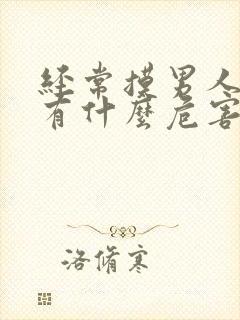 經常摸男人
有什麼危害
洛脩寒